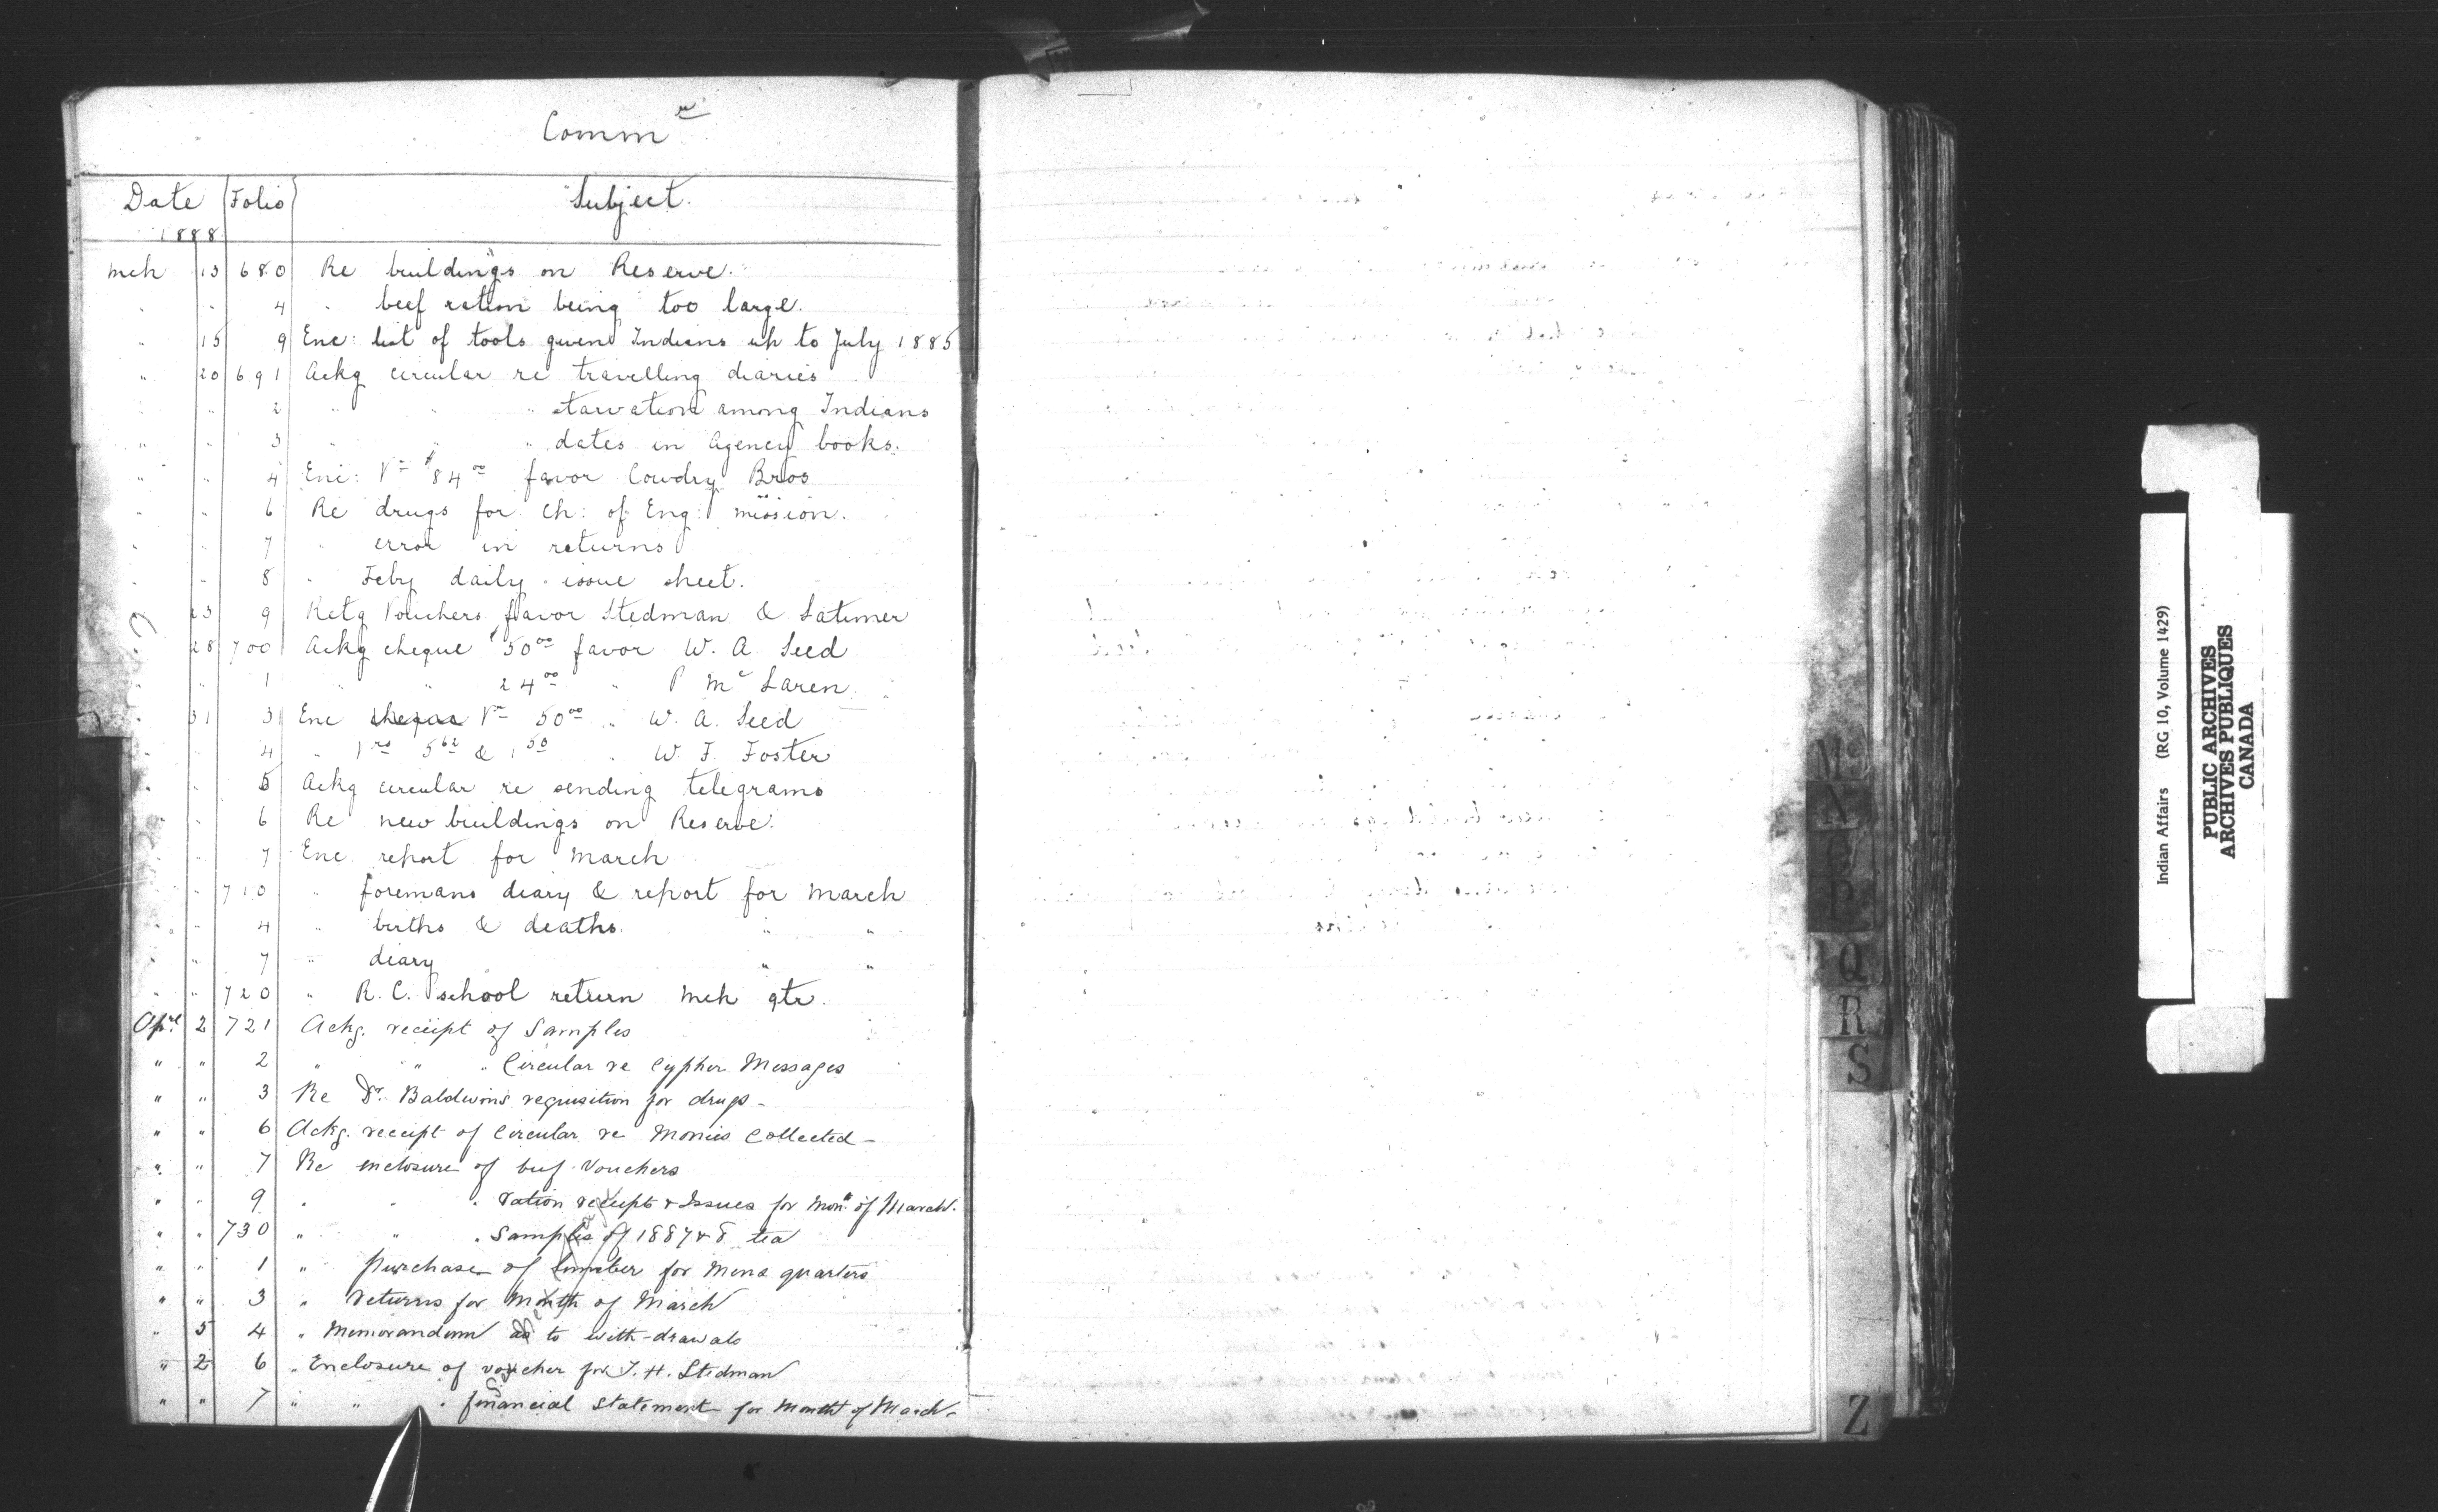 Comm^r
Date Folio Subject.
1888
Mch 13 680 Re buildings on Reserve.
" " 4 " beef ration being too large.
" 15 9 Enc: list of tools given Indians up to July 1885
" 20 691 Ackg circular re travelling diaries
" " 2 " " " starvation among Indians
" " 3 " " " dates in Agency books.
" " 4 Enc: V^r $84^00 favor Cowdry Bros
" " 6 Re drugs for Ch: of Eng: mission.
" " 7 " error in returns
" " 8 " Feby daily issue sheet.
" 23 9 Retg Vouchers favor Stedman & Latimer
" 28 700 Ackg cheque $50^00 favor W. A Seed
" " 1 " " 24^00 " P M^c Laren
" 31 3 Enc cheque V^r 50^00 " W. A. Seed
" " 4 " V^rs 5^62 & 1^50 " W. F. Foster
" " 5 Ackg circular re sending telegrams
" " 6 Re new buildings on Reserve.
" " 7 Enc report for March
" " 710 " foremans diary & report for March
" " 4 " births & deaths. " "
" " 7 " diary " "
" " 720 " R. C. school return Mch qtr.
Aprl 2 721 Ackg. receipt of Samples
" " 2 " " " Circular re Cypher Messages
" " 3 Re Dr. Baldwin's requisition for drugs -
" " 6 Ackg. receipt of Circular re Monies Collected -
" " 7 Re enclosure of beef Vouchers
" " 9 " " " ration receipts & Issues for Mon^th of March.
" " 730 " " " Samples of 1887 & 8 tea
" " 1 " Purchase of lumber for Mens quarters
" " 3 " returns for Month of March
" 5 4 " Memorandum as to with-drawals
" 2 6 " Enclosure of voucher for J. H. Stedman
" " 7 " " " financial Statement for Month of March -
Mc
N
O
P
Q
R
S
Z
Indian Affairs (RG 10, Volume 1429)
PUBLIC ARCHIVES
ARCHIVES PUBLIQUES
CANADA